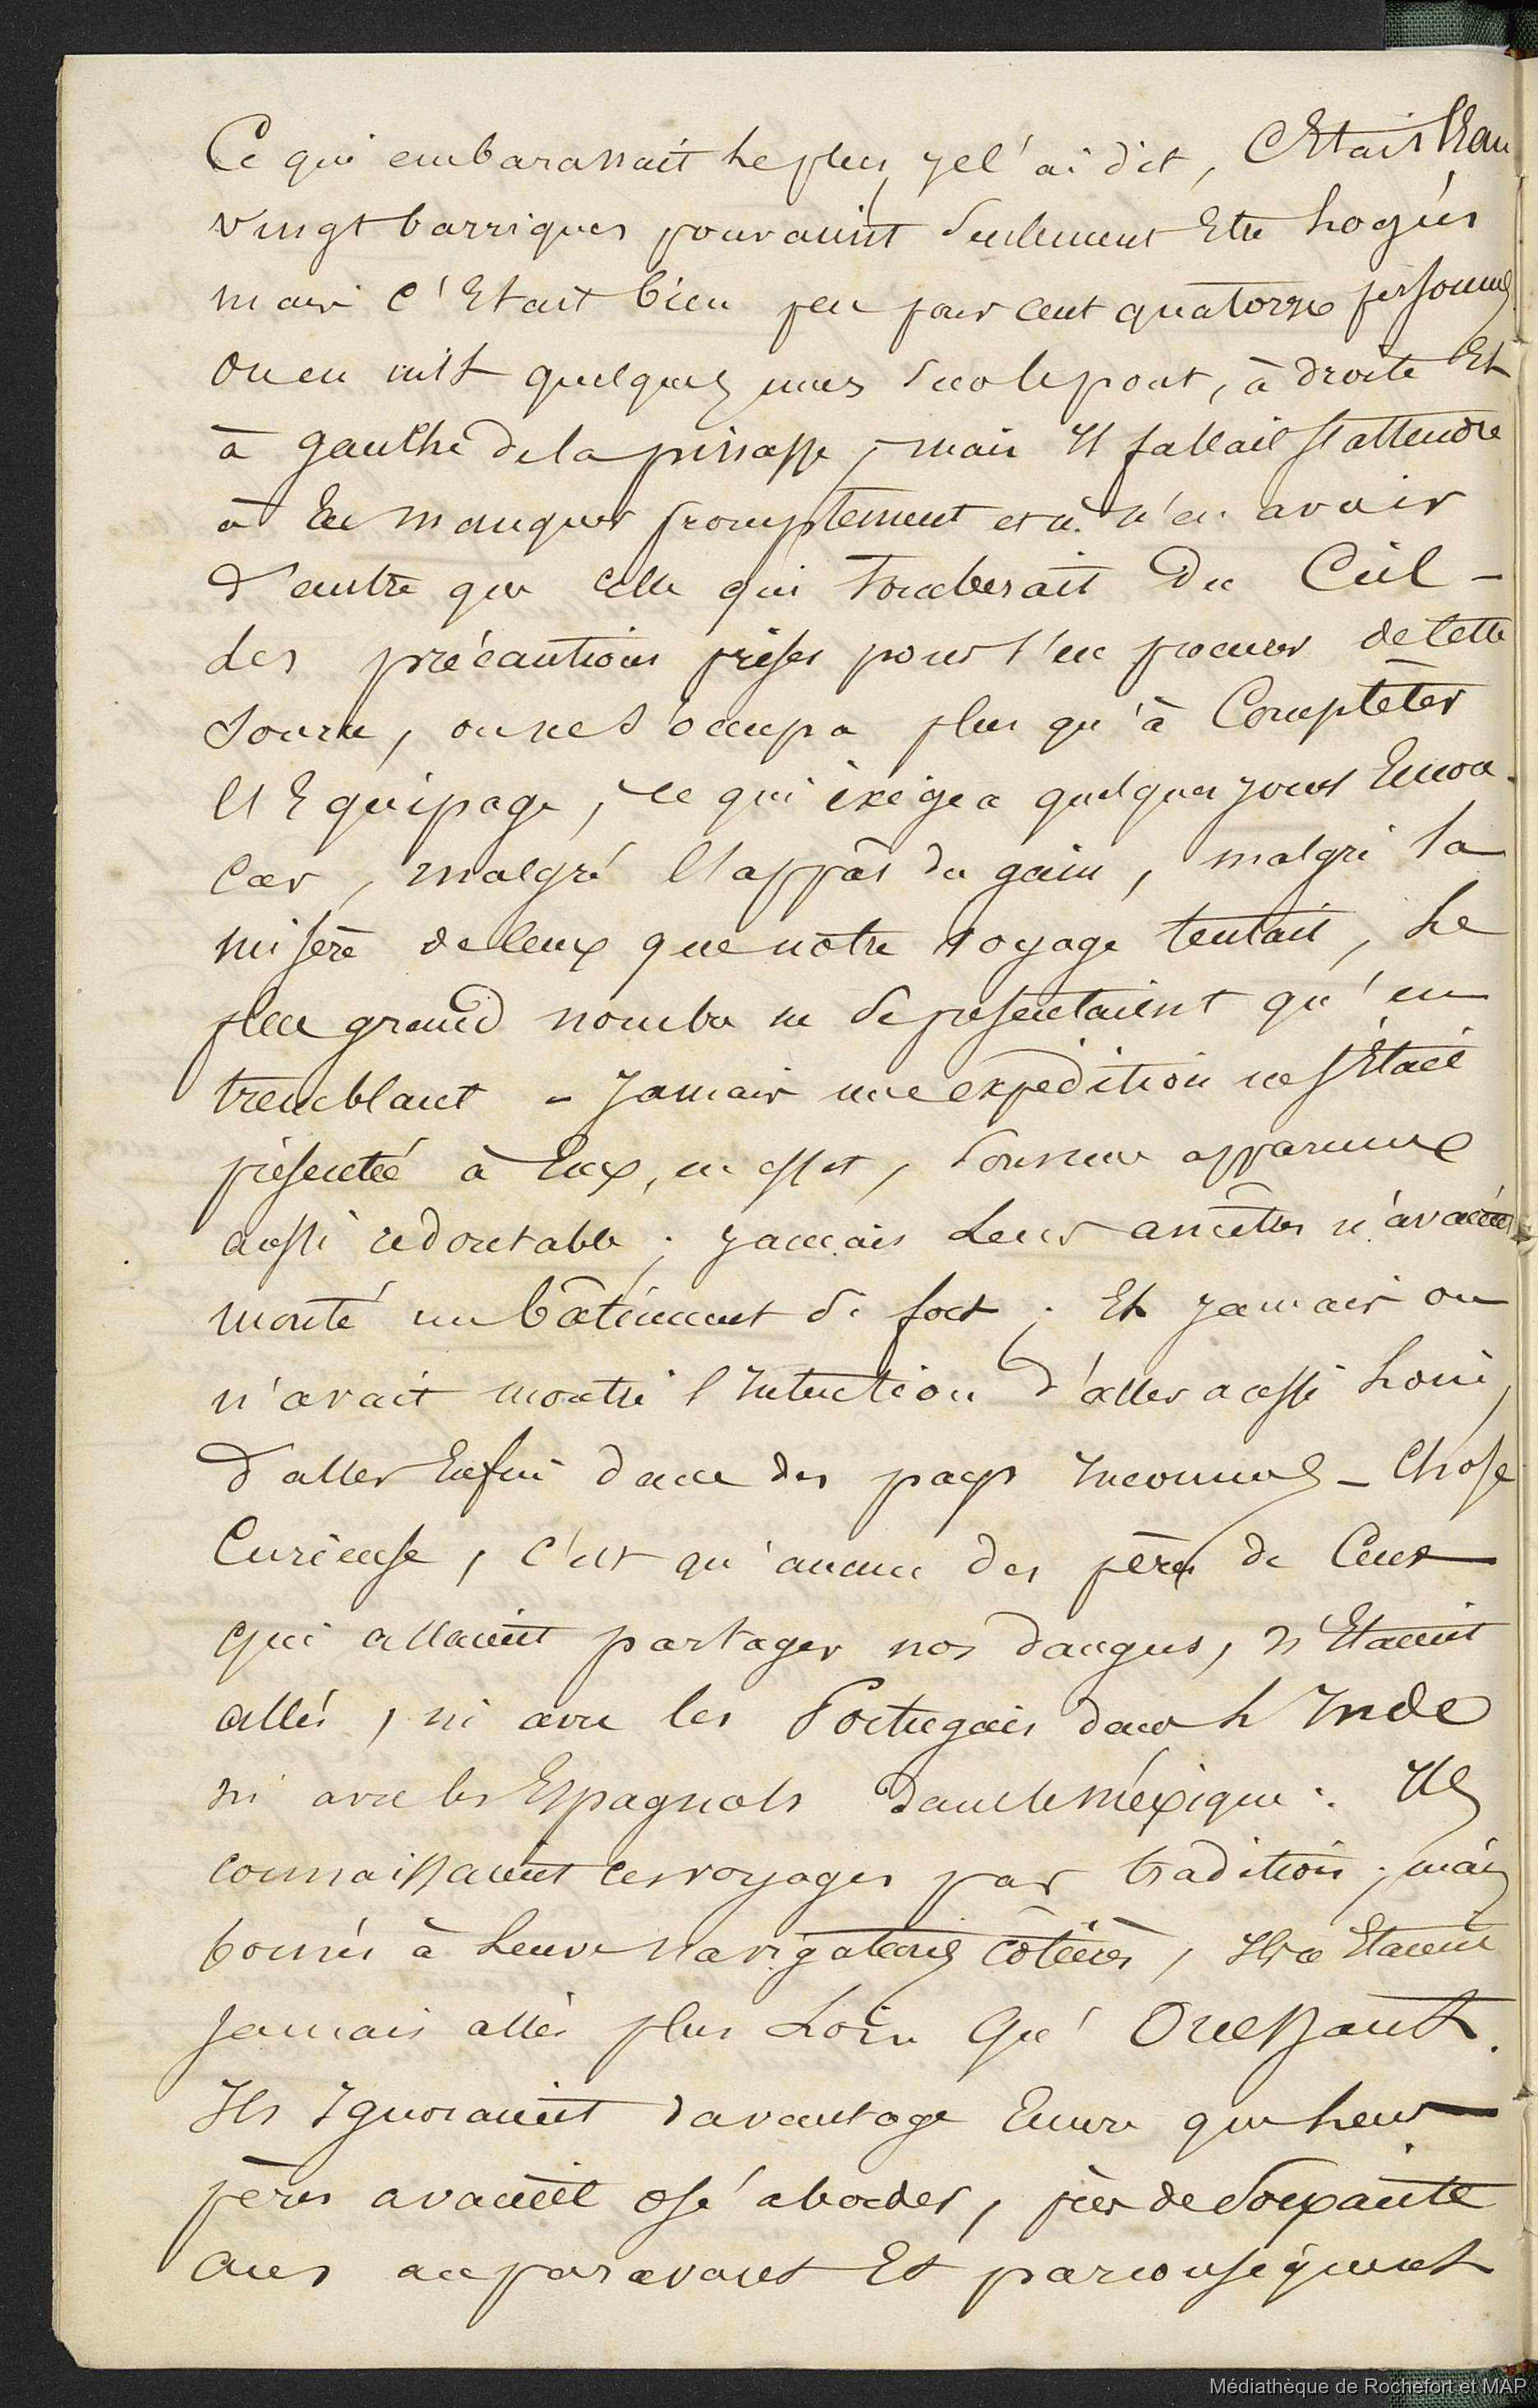 Ce qui embarassait le plus, je l'ai dit, C'Etait l'Eau
vingt barriques pouvaient seulement Etre logées
mais C'Etait bien peu pour cent quatorze personnes
on en mit quelques unes sur le pont, à droite Et
à gauche de la pinasse, mais Il fallait s'attendre
à En manquer promptement et à n'en avoir
d'autre que celle qui tomberait Du Ciel -
des précautions prises pour s'en procurer de cette
source, on ne s'occupa plus qu'à Compléter
l'Equipage, ce qui éxigea quelques jours Encore.
Car, malgré l'appât du gain, malgré la
misère de ceux que notre voyage tentait, le
plus grand nombre ne se présentaient qu'en
tremblant - Jamais une expédition ne s'Etait
présentée à Eux, en effet, sous une apparence
aussi redoutable ; jamais Leurs ancêtres n'avaient
monté un bâtiment si fort ; Et jamais on
n'avait montré l'Intention d'aller aussi loin,
d'aller Enfin dans des pays Inconnus - Chose
Curieuse, c'est qu'aucun des pères de Ceux
qui allaient partager nos dangers, n'Etaient
allés, ni avec les Portugais dans l'Inde
ni avec les Espagnols dans le méxique. Ils
connaissaient ces voyages par tradition ; mais
bornés à leurs navigations côtières, Ils n'Etaient
jamais allés plus Loin Qu'Ouessant.
Ils Ignoraient davantage Encore que leurs
pères avaient osé aborder, près de Soixante
ans auparavant Et par conséquent
Médiathèque de Rochefort et MAP